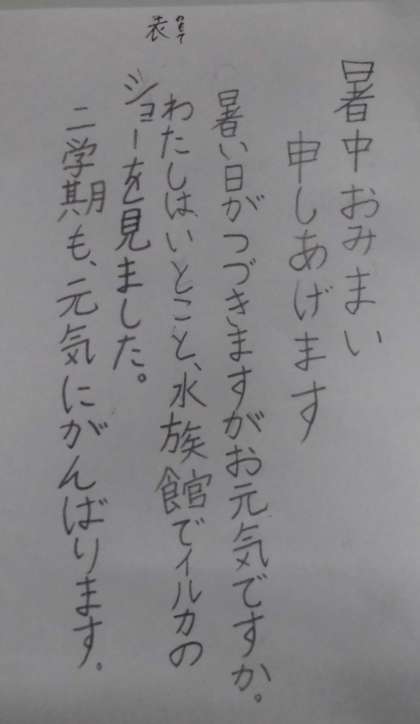 暑中おみまい
申しあげます
暑い日がつづきますがお元気ですか。
わたしはいとこと、水族館でイルカの
ショーを見ました。
二学期も、元気にがんばります。
表